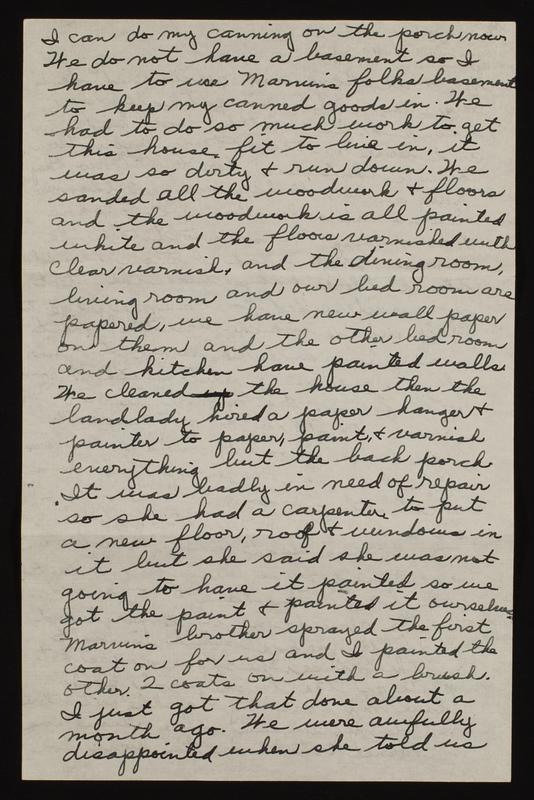 I can do my canning on the porch now
We do not have a basement so I
have to use Marvins folks basement
to keep my canned goods in. We
had to do so much work to get
this house fit to live in, it
was so dirty & run down. We
sanded all the woodwork & floors
and the woodwork is all painted
white and the floors varnished with
clear varnish, and the dining room,
living room and our bed room are
papered, we have new wall paper
on them and the other bedroom
and kitchen have painted walls.
We cleaned up the house then the
landlady hired a paper hanger &
painter to paper, paint, & varnish
everything but the back porch
It was badly in need of repair
so she had a carpenter to put
a new floor, roof & windows in
it but she said she was not
going to have it painted so we
got the paint & painted it ourselves
Marvins brother sprayed the first
coat on for us and I painted the
other 2 coats on with a brush.
I just got that done about a
month ago. We were awfully
disappointed when she told us